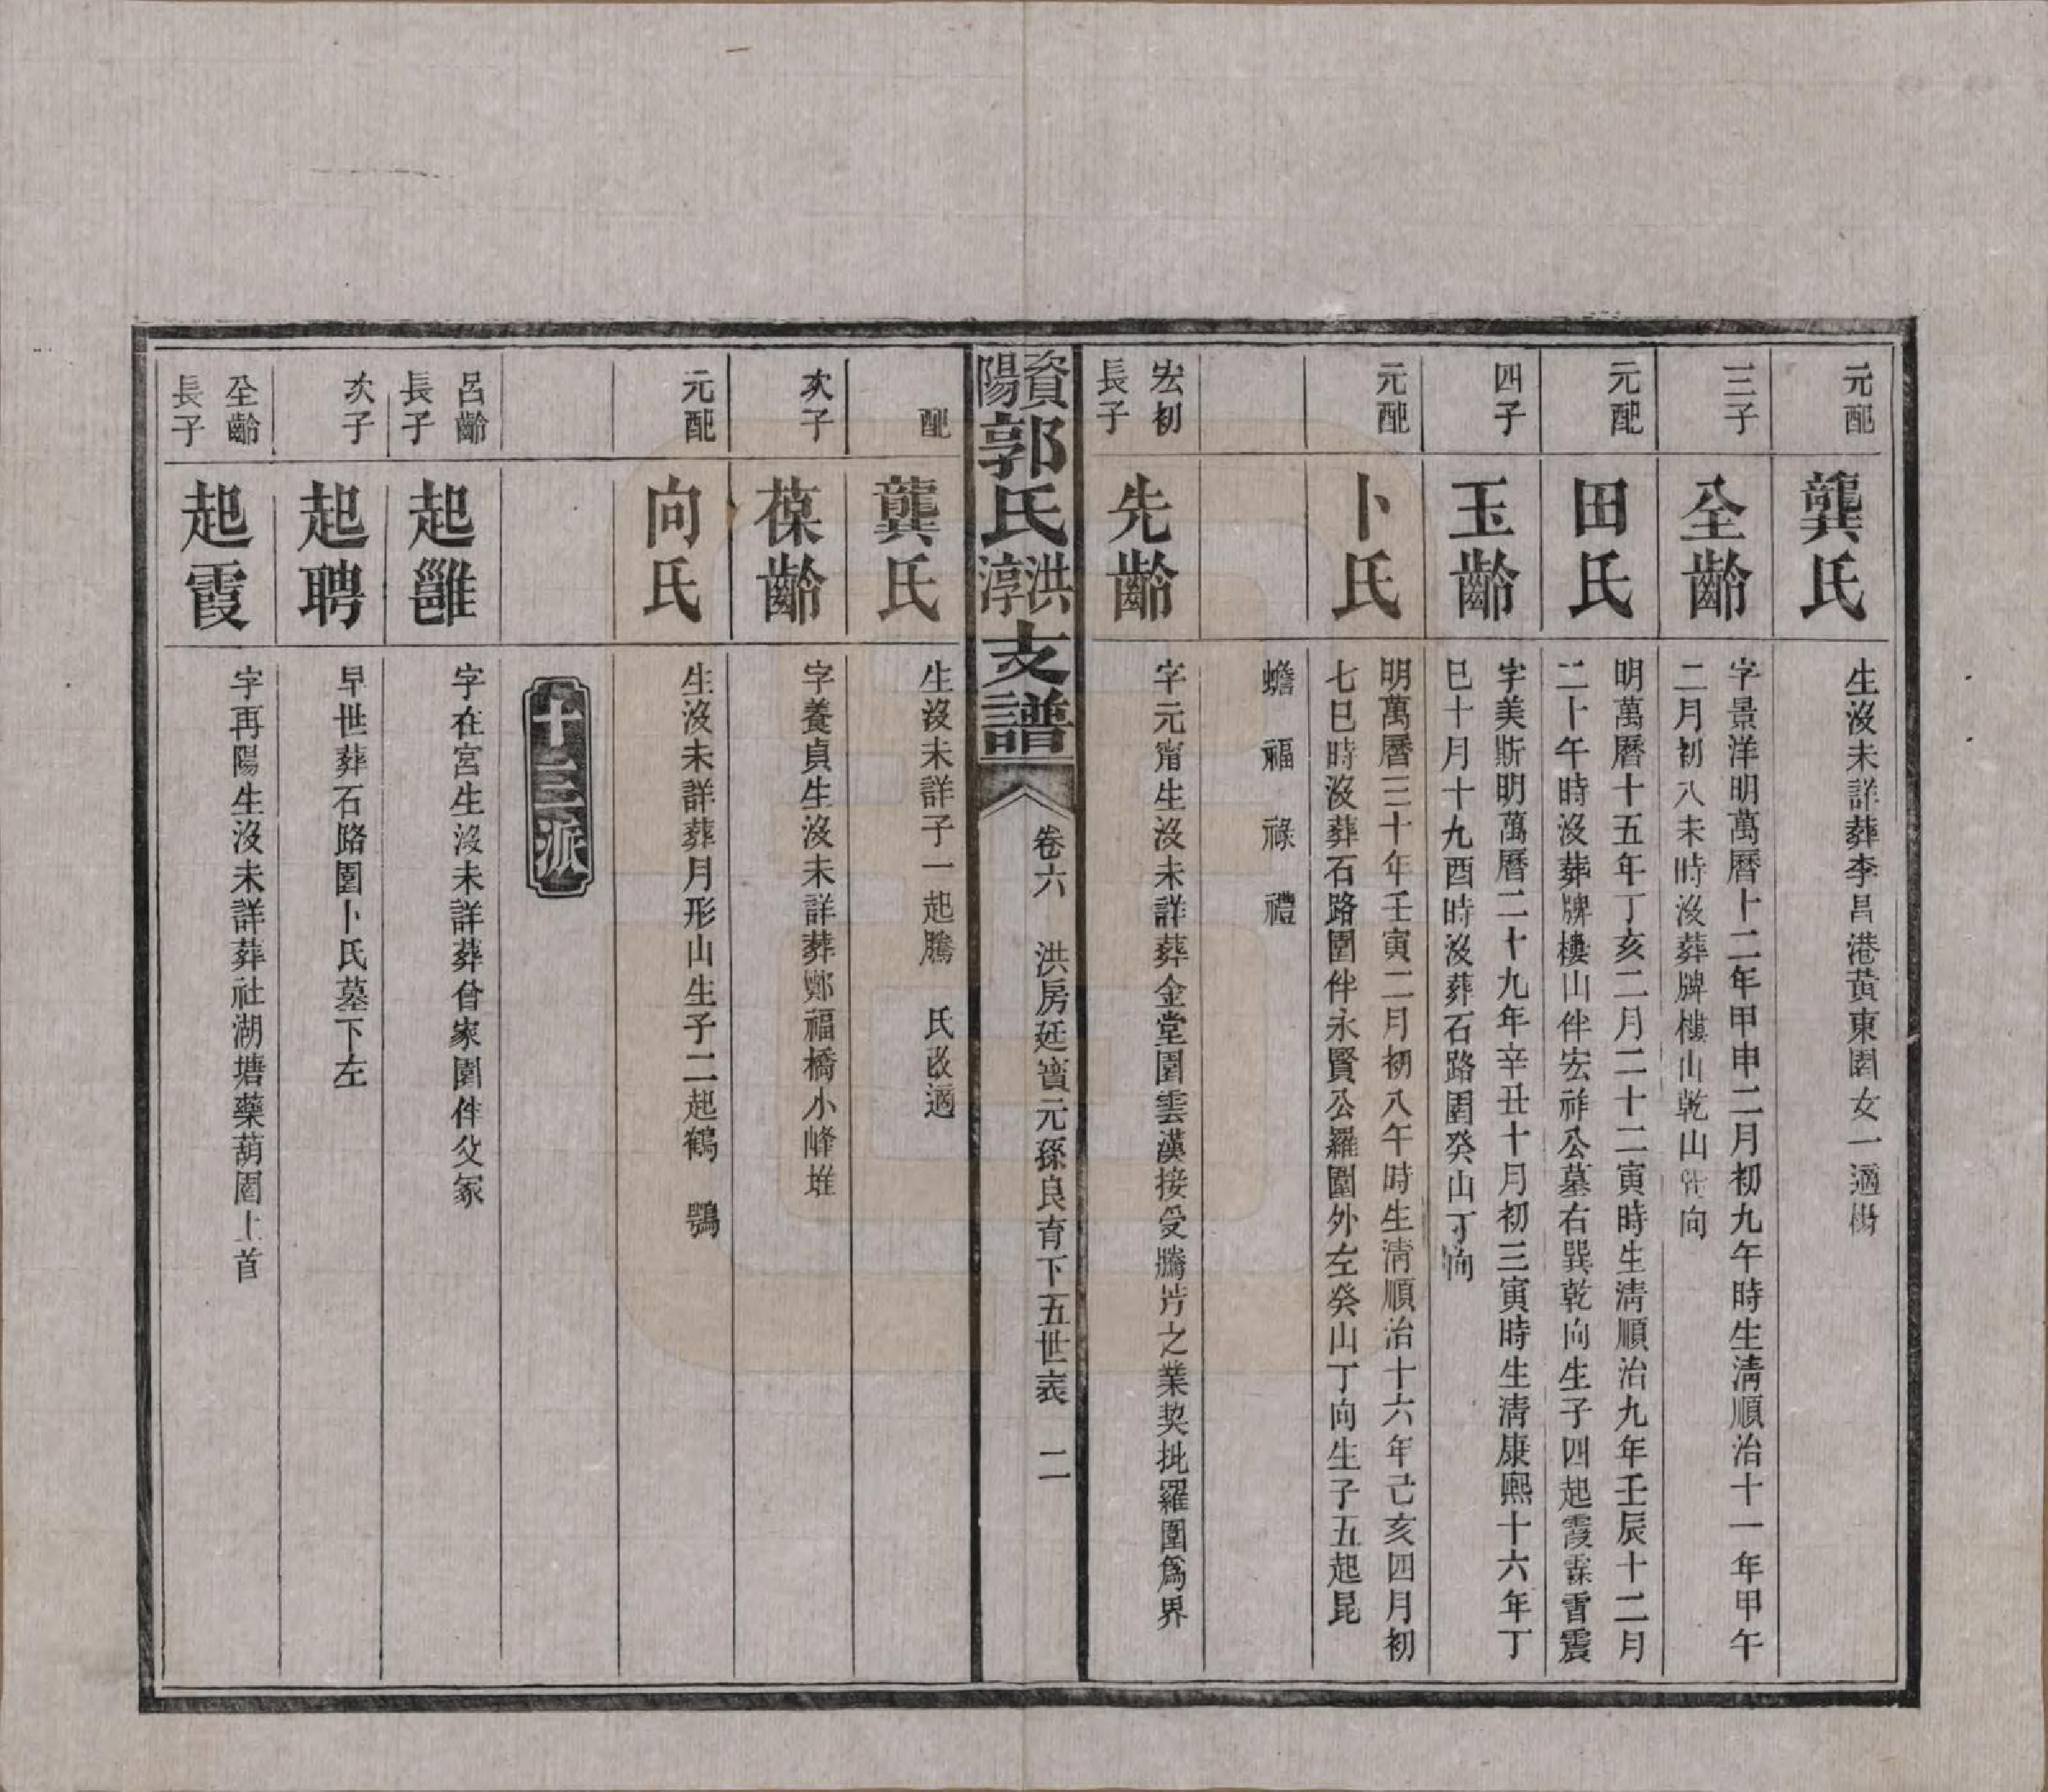 元配
龔氏
生沒未詳葬李昌港黃東園女一適楊
三子
全齡
字景洋明萬曆十二年甲申二月初九午時生淸順治十一年甲午
二月初八未時沒葬牌樓山乾山 向
元配
田氏
明萬曆十五年丁亥二月二十二寅時生淸順治九年壬辰十二月
二十午時沒葬牌樓山伴宏祚公墓右巽乾向生子四起霞霖雷震
四子
玉齡
字美斯明萬曆二十九年辛丑十月初三寅時生淸康熙十六年丁
巳十月十九酉時沒葬石路園癸山丁向
元配
卜氏
明萬曆三十年壬寅二月初八午時生淸順治十六年己亥四月初
七巳時沒葬石路園伴永賢公羅圍外左癸山丁向生子五起昆
蟾 福 祿 禮
宏初
長子
先齡
字元甯生沒未詳葬金堂園雲漢接受騰芳之業契批羅圍爲界
資陽郭氏洪淳支譜
卷六 洪房廷寶元孫良育下五世表 二
配
龔氏
生沒未詳子一起騰 氏改適
次子
葆齡
字養貞生沒未詳葬鄭福橋小峰堆
元配
向氏
生沒未詳葬月形山生子二起鶴 鶚
十三派
呂齡
長子
起雝
字在宮生沒未詳葬曾家園伴父冢
次子
起聘
早世葬石路園卜氏墓下左
全齡
長子
起霞
字再陽生沒未詳葬社湖塘藥葫園上首